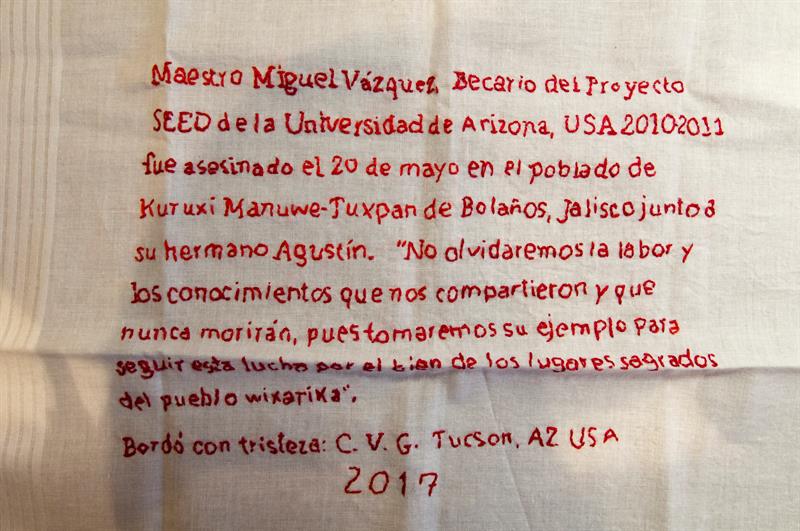 Maestro Miguel Vázquez, Becario del Proyecto
SEED de la Universidad de Arizona, USA 2010-2011
fue asesinado el 20 de mayo en el poblado de
Kuruxi Manuwe-Tuxpan de Bolaños, Jalisco junto a
su hermano Agustín. "No olvidaremos la labor y
los conocimientos que nos compartieron y que
nunca morirán, pues tomaremos su ejemplo para
seguir esta lucha por el bien de los lugares sagrados
del pueblo wixarika".
Bordó con tristeza: C. V. G. Tucson, AZ USA
2017